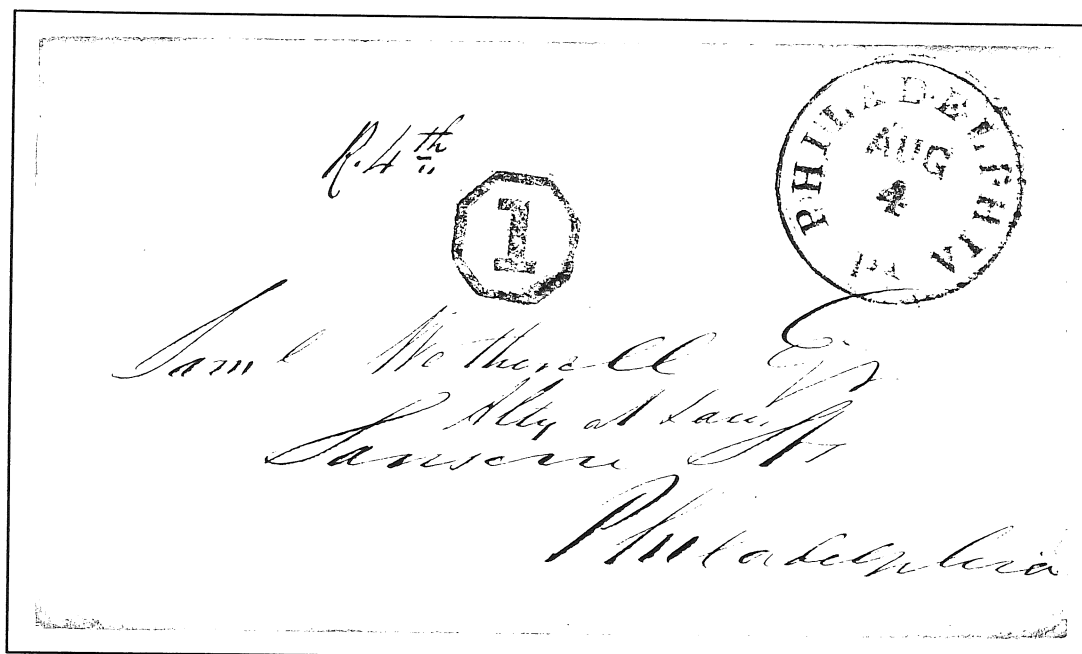 R. 4th
1
PHILADELPHIA Pa
AUG
4
Saml Wetherell Esqr
Atty at Law,
Sansom St
Philadelphia